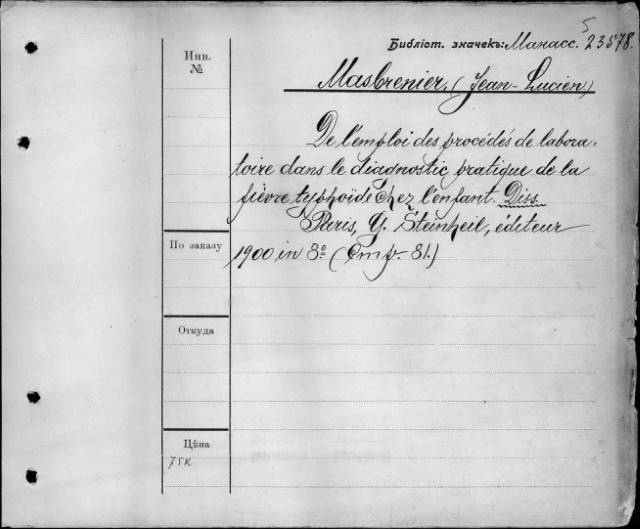 5
Библіот. значекъ: Манасс. 23578.
Инв.
№
Masbrenier, (Jean-Lucien)
De l'emploi des procédés de labora-
toire dans le diagnostic pratique de la
fièvre typhoïde chez l'enfant. Diss.
Paris, G. Steinheil, éditeur
По заказу
1900 in 8º (Стр. 81.)
Откуда
Цѣна
75к